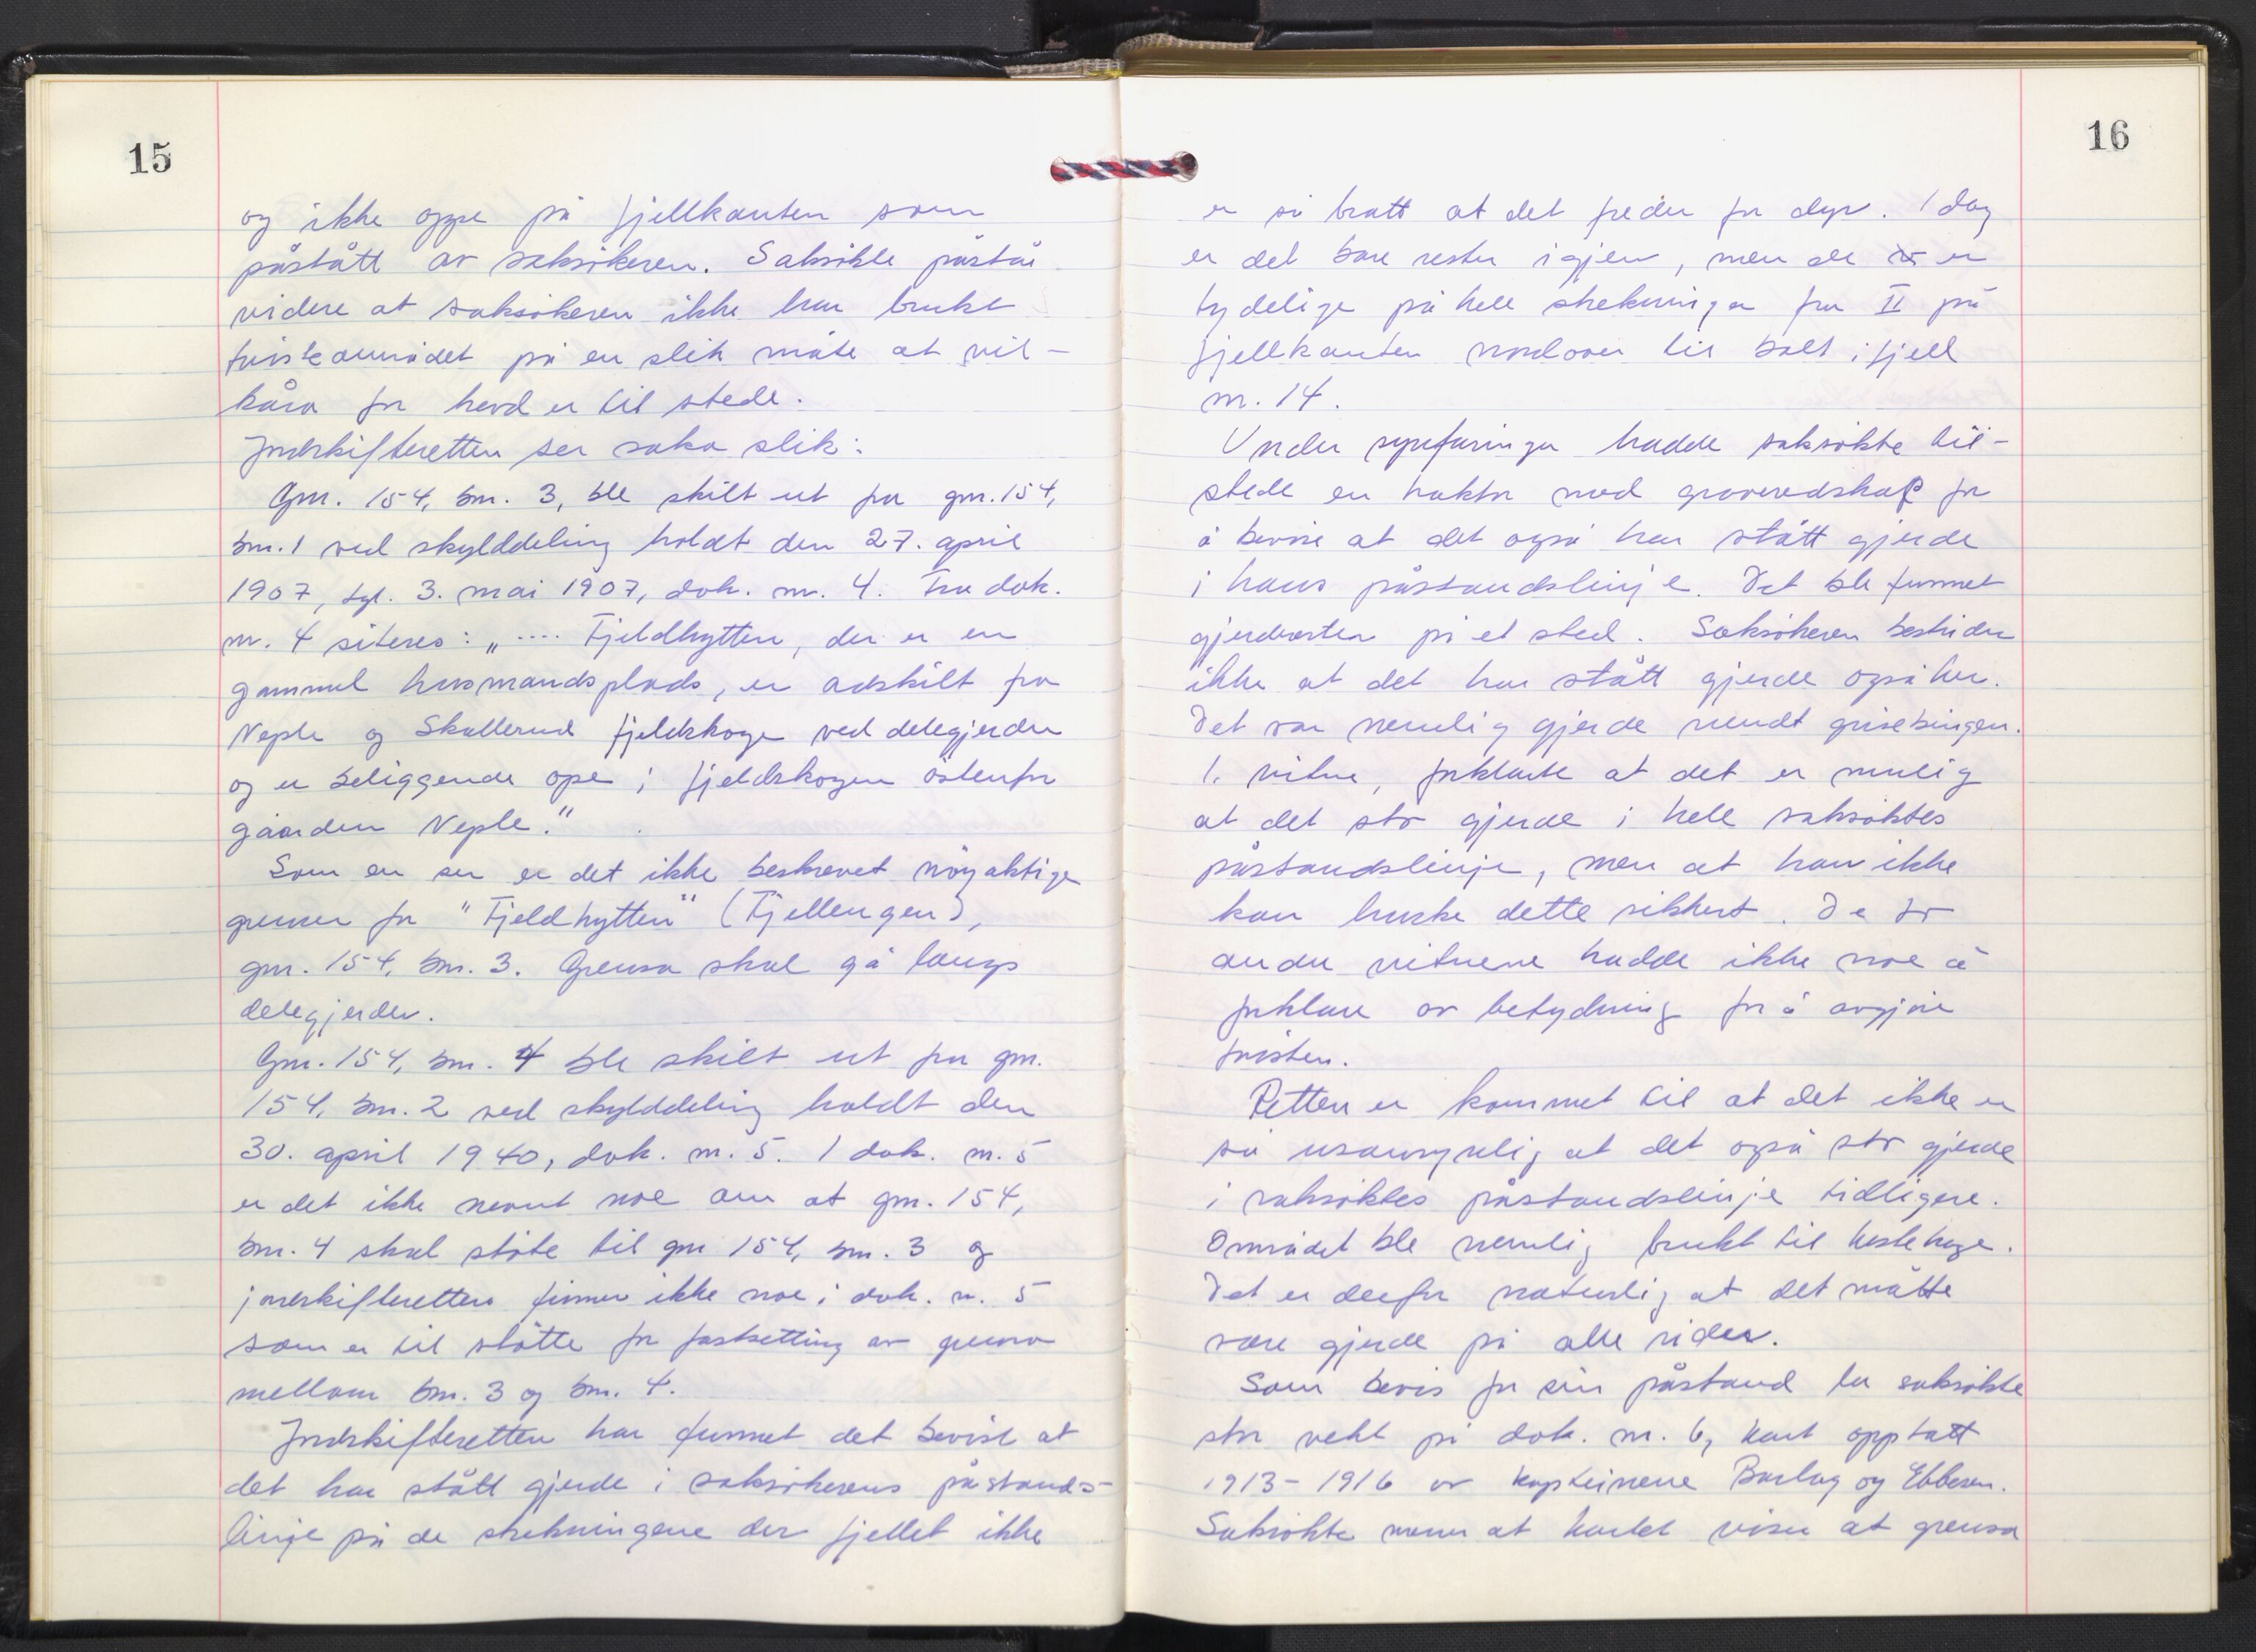 15
og ikke oppe på fjellkanten som
påstått av saksøkeren. Saksøkte påstår
videre at saksøkeren ikke har brukt
tvisteområdet på en slik måte at vil-
kåra for hevd er til stede.
Jordskifteretten ser saka slik:
Gnr. 154, bnr. 3, ble skilt ut fra gnr. 154,
bnr. 1 ved skylddeling holdt den 27. april
1907, tgl. 3. mai 1907, dok. nr. 4. Fra dok.
nr. 4 siteres: „.... Fjeldhytten, der er en
gammel husmandsplads, er adskilt fra
Neple og Skullerud fjeldskoge ved delegjerder
og er beliggende ope i fjeldskogen østenfor
gaarden Neple."
Som en ser er det ikke beskrevet nøyaktige
grenser for "Fjeldhytten" (Fjellengen),
gnr. 154, bnr. 3. Grensa skal gå langs
delegjerder.
Gnr. 154, bnr. 4 ble skilt ut fra gnr.
154, bnr. 2 ved skylddeling holdt den
30. april 1940, dok. nr. 5. I dok. nr. 5
er det ikke nevnt noe om at gnr. 154,
bnr. 4 skal støte til gnr 154, bnr. 3 og
jordskifteretten finner ikke noe i dok. nr. 5
som er til støtte for fastsetting av grensa
mellom bnr. 3 og bnr. 4.
Jordskifteretten har funnet det bevist at
det har stått gjerde i saksøkerens påstands-
linje på de strekningene der fjellet ikke
16
er så bratt at det freder for dyr. I dag
er det bare rester igjen, men de er
tydelige på hele strekninga fra II på
fjellkanten nordover til bolt i fjell
nr. 14.
Under synfaringa hadde saksøkte til-
stede en traktor med graveredskap for
å bevise at det også har stått gjerde
i hans påstandslinje. Det ble funnet
gjerderester på et sted. Saksøkeren bestrider
ikke at det har stått gjerde også her.
Det var nemlig gjerde rundt grisebingen.
1. vitne, forklarte at det er mulig
at det sto gjerde i hele saksøktes
påstandslinje, men at han ikke
kan huske dette sikkert. De to
andre vitnene hadde ikke noe å
forklare av betydning for å avgjøre
tvisten.
Retten er kommet til at det ikke er
så usannsynlig at det også sto gjerde
i saksøktes påstandslinje tidligere.
Området ble nemlig brukt til hestehage.
Det er derfor naturlig at det måtte
være gjerde på alle sider.
Som bevis for sin påstand la saksøkte
stor vekt på dok. nr. 6, kart opptatt
1913-1916 av kapteinene Barlag og Ebbesen.
Saksøkte mener at kartet viser at grensa